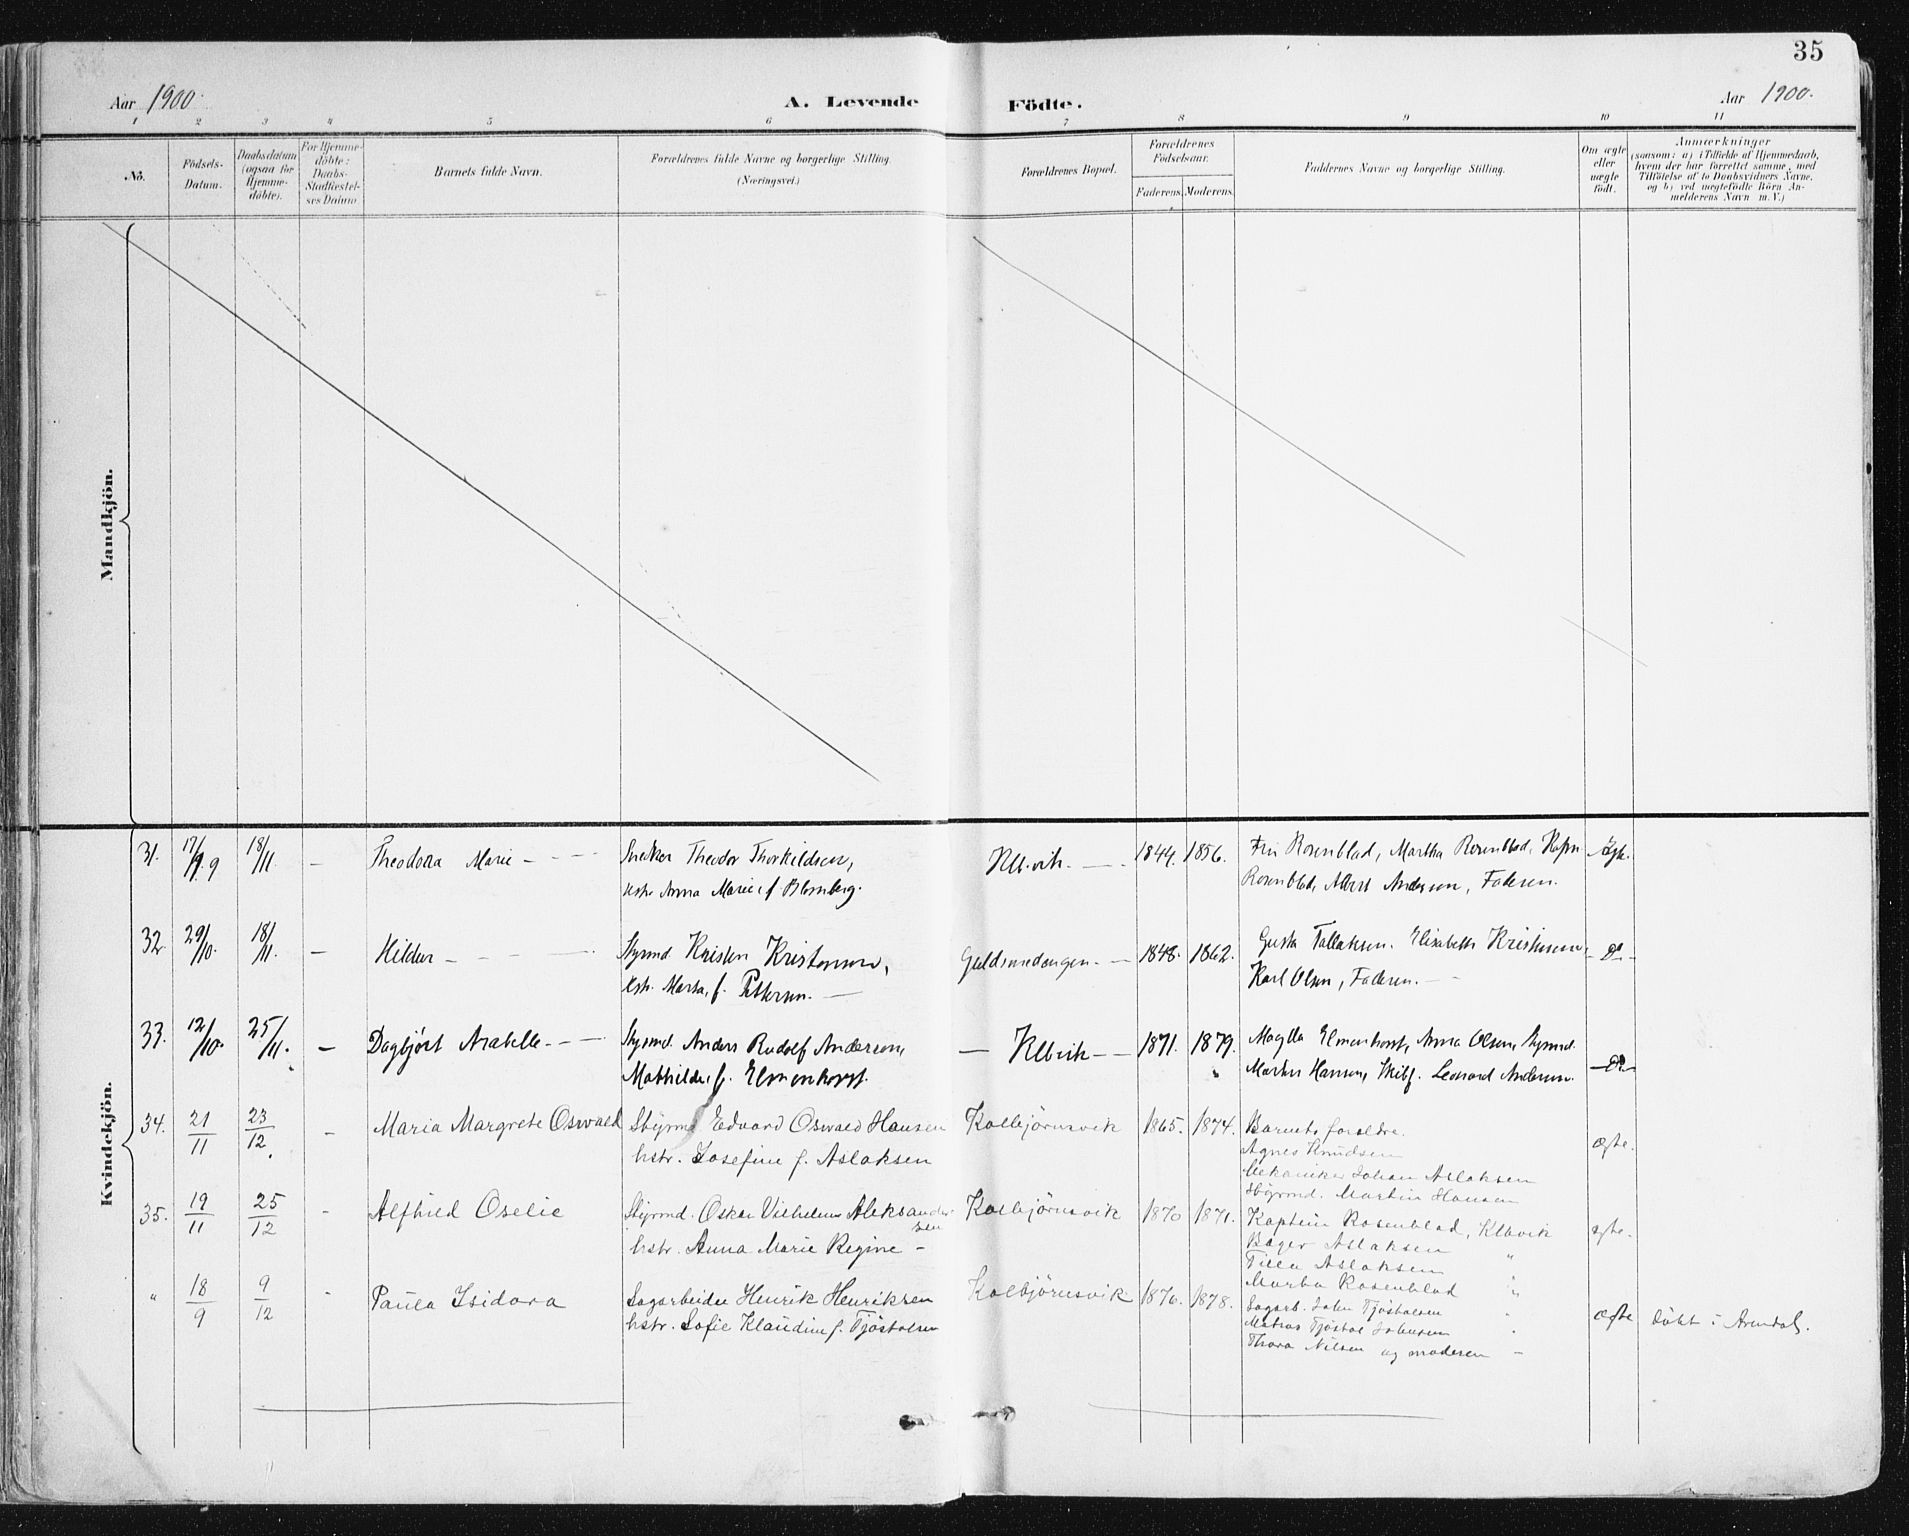 35
Aar 1900. A. Levende Födte. Aar 1900.
1 2 3 4 5 6 7 8 9 10 11
No.
Födsels-
Datum.
Daabsdatum
(ogsaa for
Hjemme-
döbte).
For Hjemme-
döbte:
Daabs-
Stadfæstel-
ses Datum
Barnets fulde Navn.
Forældrenes fulde Navne og borgerlige Stilling.
(Næringsvei.)
Forældrenes Bopæl.
Forældrenes
Födselsaar.
Faderens. Moderens.
Faddernes Navne og borgerlige Stilling.
Om ægte
eller
uægte
født.
Anmærkninger
(saasom: a) i Tilfælde af Hjemmedaab,
hvem der har forrettet samme, med
Tilföielse af to Daabsvidners Navne,
og b) ved uægtefödte Börn An-
melderens Navn m. V.)
Mandkjön.
Kvindekjön.
31. 17/9 18/11. – Theodora Marie – Snedker Theodor Thorkildsen,
Anna Marie, f. Blomberg.
Klb.vik. – 1844. 1856. Rosenblad, Martha Rosenblad,
Rosenblad, Albert Andersen, Faderen. Ægte.
32. 29/10. 18/11. – Hildur – Styrmd. Kristen
hstr. Marta, f. Pettersen. –
Guldsmedengen. – 1848. 1862. Gusta Tallaksen. Elisabeth
Karl Olsen, Faderen. – Do
33. 12/10. 25/11. – Dagbjört Arabelle – Styrmd. Anders Rudolf Andersen,
Mathilde, f. Elmenhorst.
– Klbvik – 1871. 1879. Magda Elmenhorst, Anna Olsen, Styrmd.
Martin Hansen, Skibf. Leonard Andersen. Do
34. 21/11 23/12. – Maria Margrete Oswald Styrmd Edvard Oswald Hansen
hstr. Josefine f. Aslaksen
Kolbjørnsvik 1865. 1874. Barnets foreldre.
Agnes Knudsen
Mekaniker Johan Aslaksen
Styrmd. Martin Hansen
ægte.
35. 19/11 25/12 – Alfhild Oselie Styrmd. Oskar Vilhelm Aleksander
sen
hstr. Anna Marie Regine –
Kolbjørnsvik 1870 1871. Kaptein Rosenblad, Klbvik
Bager Aslaksen
Tilla Aslaksen "
Marta Rosenblad "
ægte.
" 18/9 9/12 – Paula Isidora Sagarbeider Henrik Henriksen
hstr. Sofie Klaudine f. Tjöstolsen
Kolbjørnsvik 1876. 1878. Sagarb. John Tjöstolsen "
Matros Tjöstol Johnsen "
Thora Nilsen og moderen –
ægte döbt i Arendal.